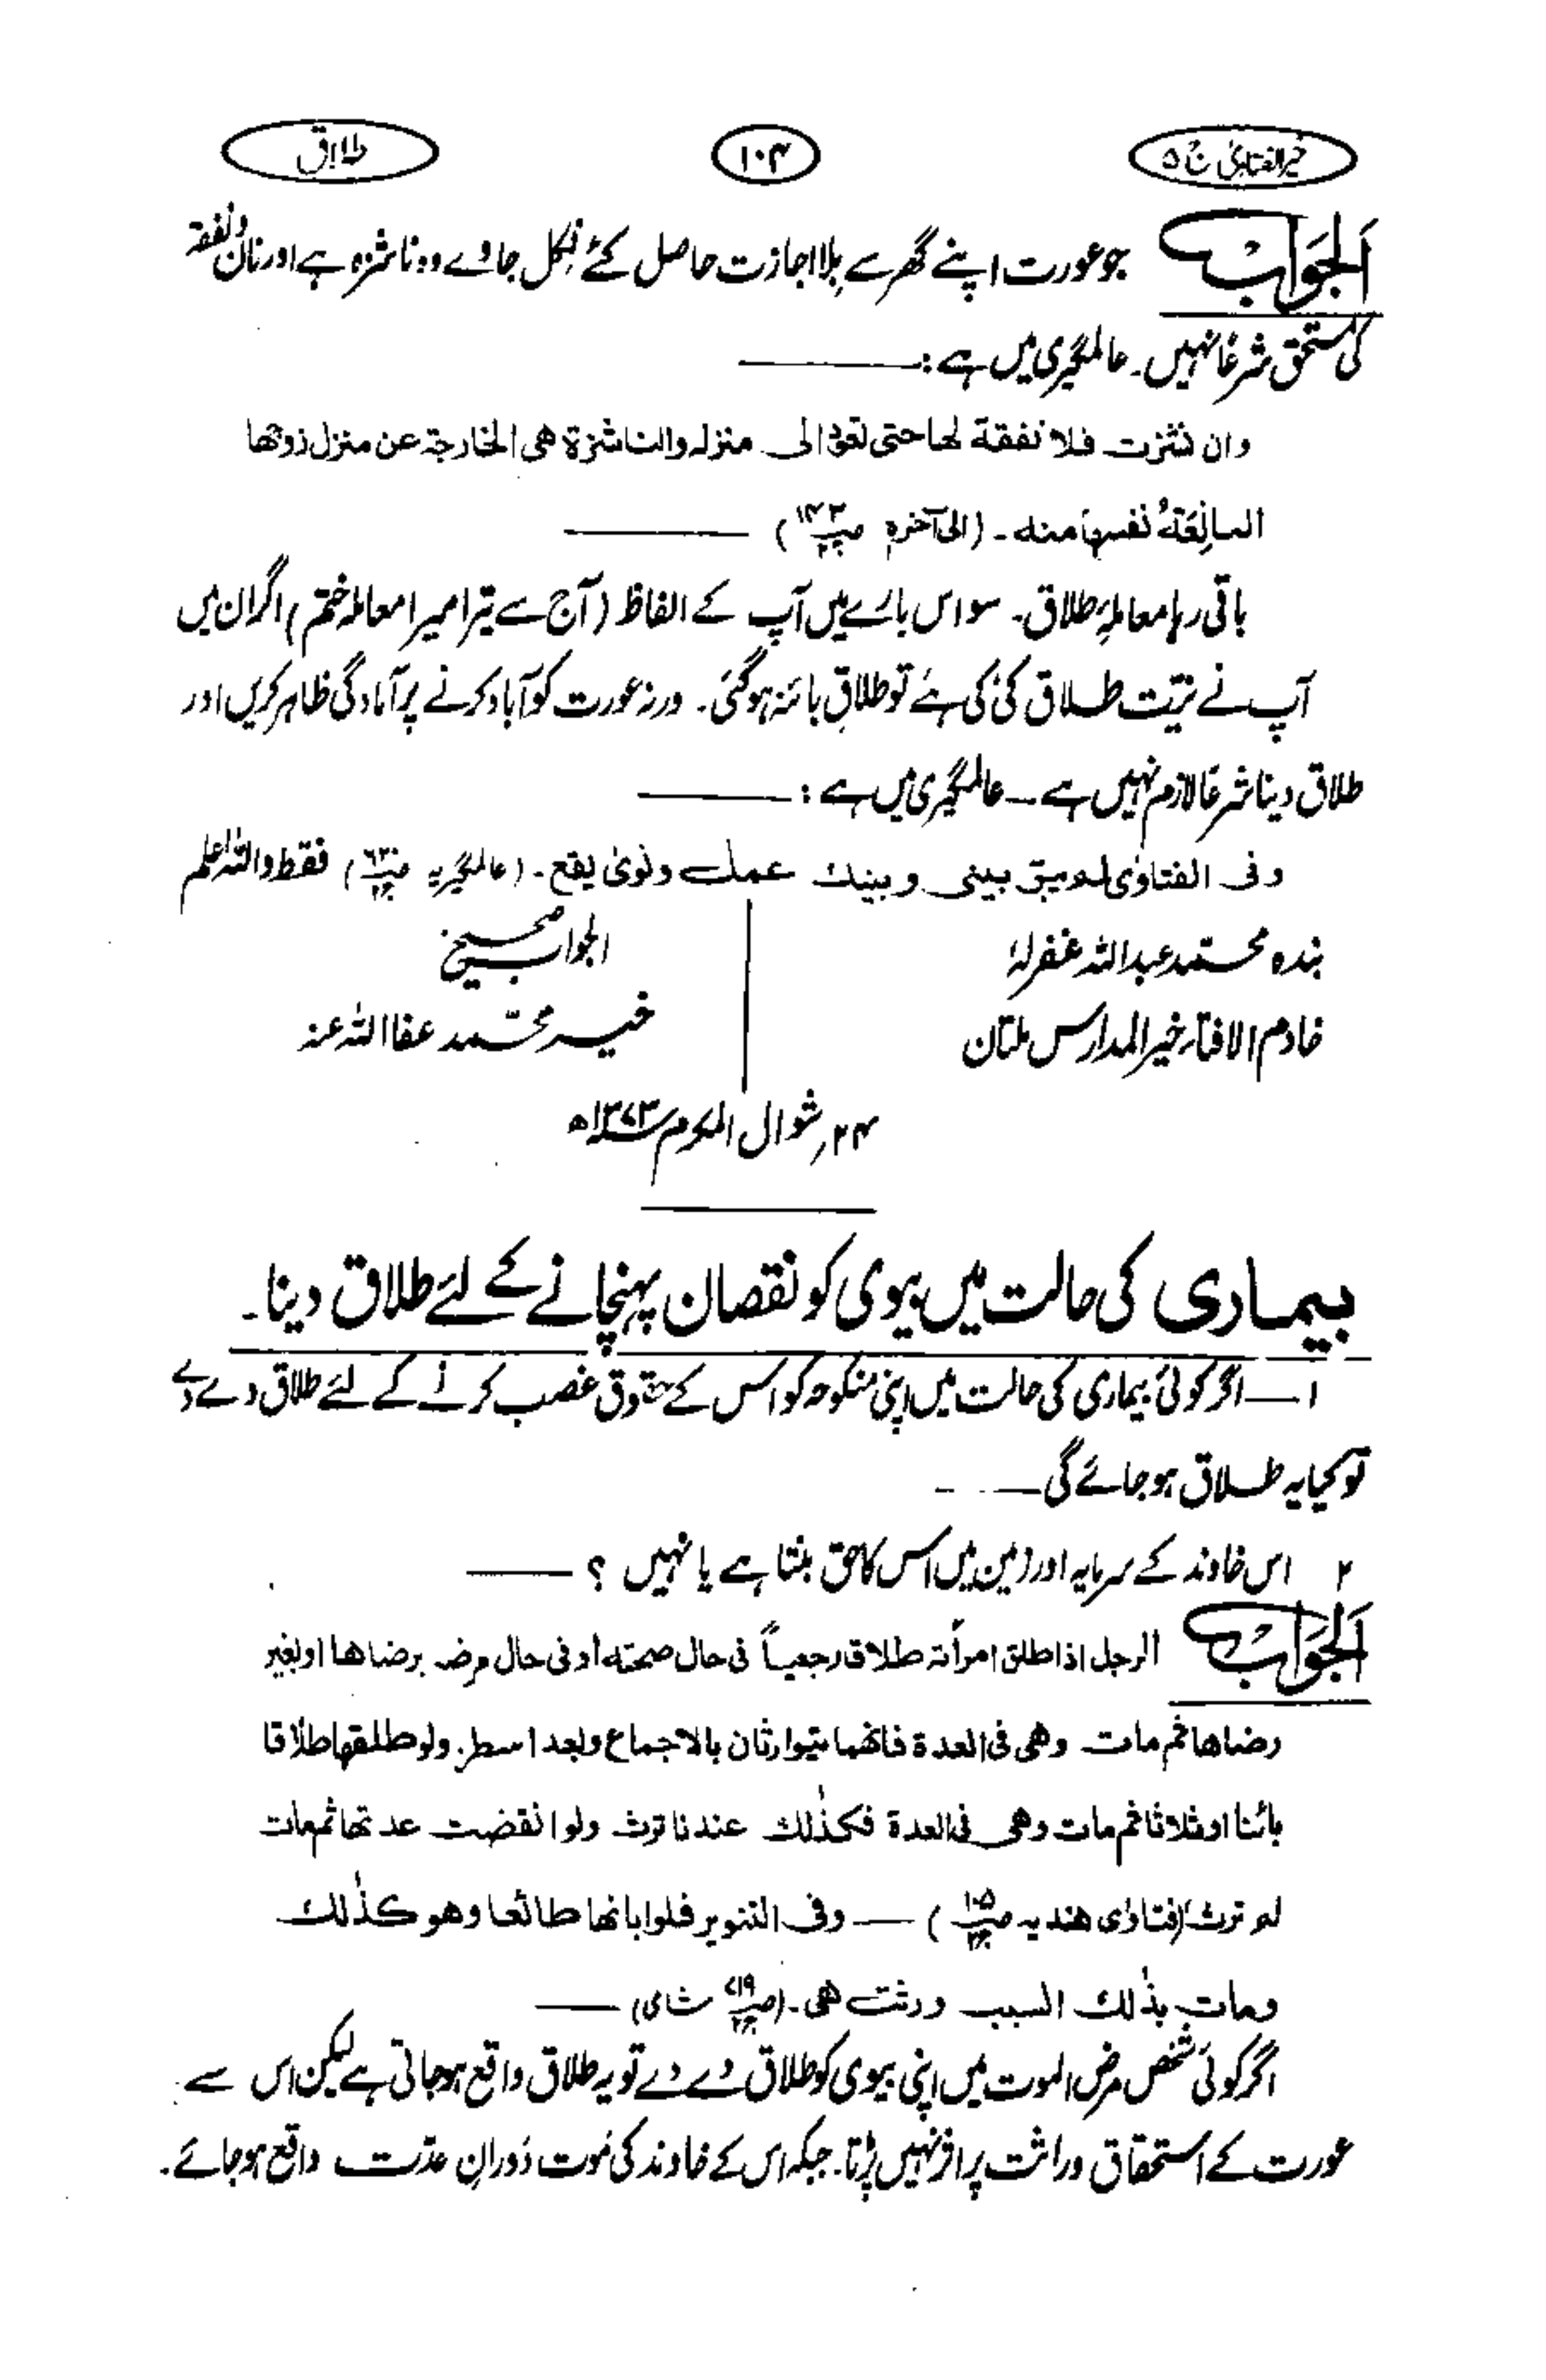 خیر الفتاویٰ ج ۵
۱۰۴
طلاق
الجواب جو عورت اپنے گھر سے بلا اجازت حاصل کئے نکل جاوے وہ ناشزہ ہے اور نان و نفقہ
کی مستحق شرعًا نہیں۔ عالمگیری میں ہے :
وان نشزت فلا نفقة لها حتى تعود الى منزله والناشزة هى الخارجة عن منزل زوجها
المانِعَةُ نفسها منه ۔ (الی آخرہ
باقی رہا معاملہ طلاق۔ سو اس بارے میں آپ کے الفاظ (آج سے تیرا میرا معاملہ ختم) اگر ان میں
آپ نے نیّت طلاق کی کی ہے تو طلاقِ بائنہ ہوگئی۔ ورنہ عورت کو آباد کرنے پر آمادگی ظاہر کریں اور
طلاق دینا شرعًا لازم نہیں ہے ــ عالمگیری میں ہے :
وفى الفتاوٰى لم يبق بينى وبينك عمل ونوىٰ يقع ۔ (عالمگیریہ فقط واللہ اعلم
بندہ محمد عبداللہ غفرلہٗ
الجواب صحیح
خادم الافتاء خیر المدارس ملتان
خیر محمّد عفا اللہ عنہ
۲۴؍ شوال المکرم ۱۳۷۳ھ
بیماری کی حالت میں بیوی کو نقصان پہنچانے کے لئے طلاق دینا۔
۱ــ اگر کوئی بیماری کی حالت میں اپنی منکوحہ کو اس کے حقوق غصب کرنے کے لئے طلاق دے دے
تو کیا یہ طلاق ہو جائے گی
۲ اس خاوند کے سرمایہ اور زمین میں اس کا حق بنتا ہے یا نہیں ؟
الجواب الرجل اذا طلق امرأته طلاقا رجعياً فى حال صحته أو فى حال مرضه برضاها او بغير
رضاها ثم مات وهى فى العدة فانهما يتوارثان بالاجماع وبعد اسطر. ولو طلقها طلاقا
بائنا او ثلاثا ثم مات وهى فى العدة فكذٰلك عندنا ترث ولو انقضت عدتها ثم مات
لم ترث (فتاوٰى هنديه ص ۱۰۵) ــ وفى التنوير فلو ابانها طائعا وهو كذٰلك
ومات بذٰلك السبب ورثته هى ۔ (ص ۷۱۹ شامی)
اگر کوئی شخص مرض الموت میں اپنی بیوی کو طلاق دے دے تو یہ طلاق واقع ہو جاتی ہے لیکن اس سے
عورت کے استحقاق وراثت پر اثر نہیں پڑتا۔ جبکہ اس کے خاوند کی موت دَورانِ عدّت واقع ہو جائے۔